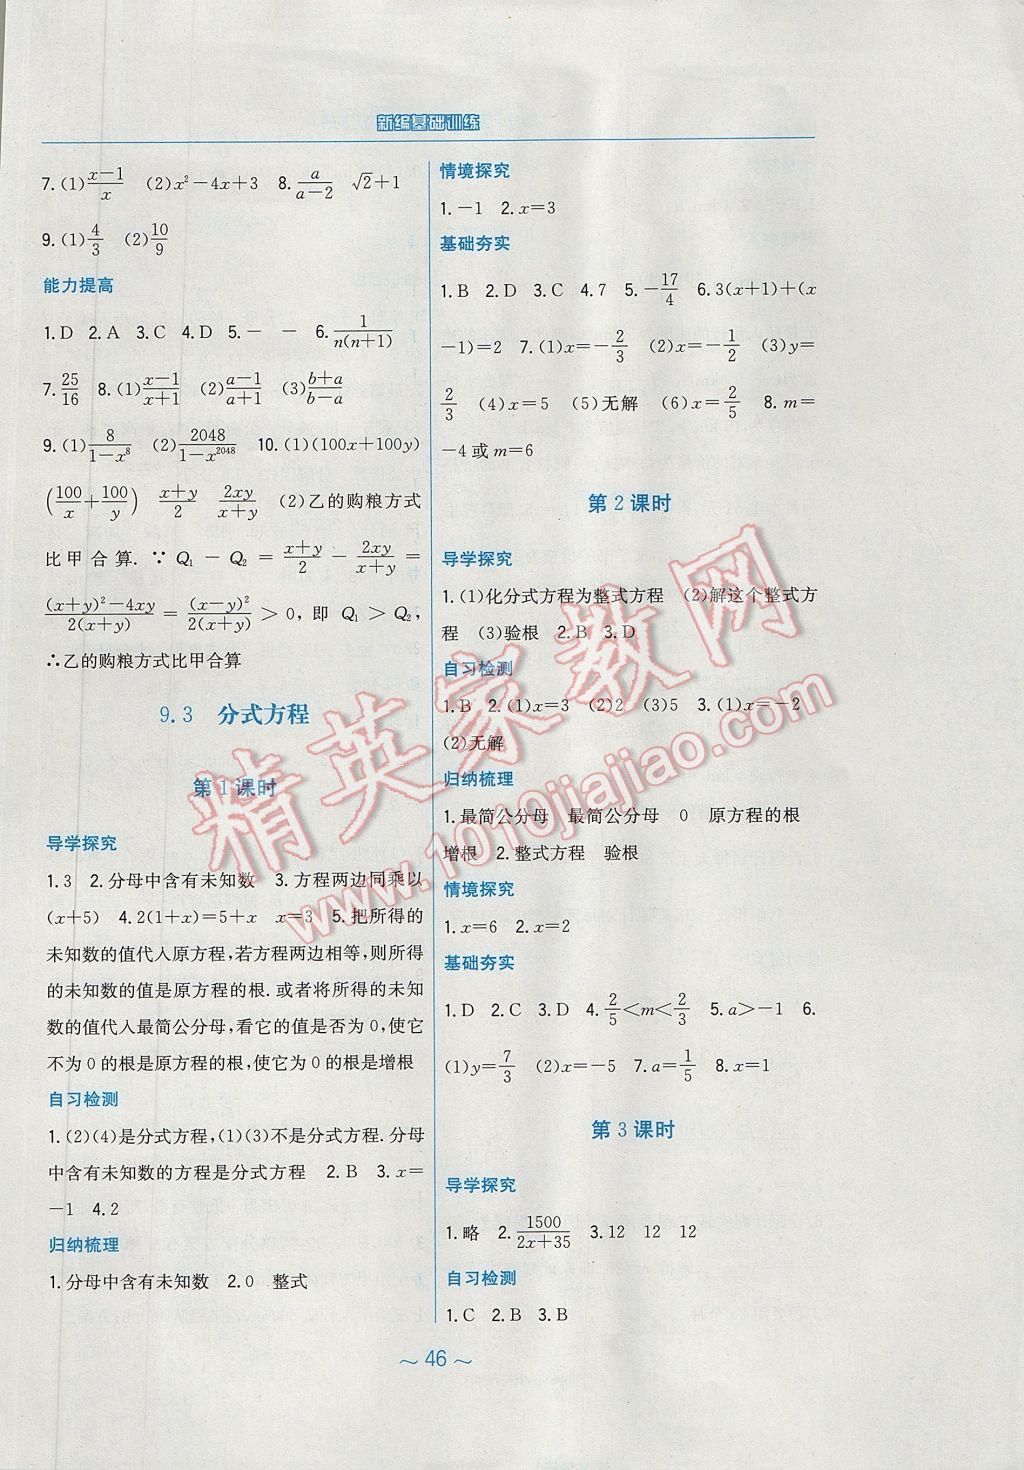 新编基础训练
7.(1)$\frac{x-1}{x}$ (2)$x^2-4x+3$ 8.$\frac{a}{a-2}$ $\sqrt{2}+1$
9.(1)$\frac{4}{3}$ (2)$\frac{10}{9}$
能力提高
1.D 2.A 3.C 4.D 5.－ － 6.$\frac{1}{n(n+1)}$
7.$\frac{25}{16}$ 8.(1)$\frac{x-1}{x+1}$ (2)$\frac{a-1}{a+1}$ (3)$\frac{b+a}{b-a}$
9.(1)$\frac{8}{1-x^8}$ (2)$\frac{2048}{1-x^{2048}}$ 10.(1)(100x+100y)
$\left(\frac{100}{x}+\frac{100}{y}\right)$ $\frac{x+y}{2}$ $\frac{2xy}{x+y}$ (2)乙的购粮方式
比甲合算.∵$Q_1-Q_2=\frac{x+y}{2}-\frac{2xy}{x+y}=$
$\frac{(x+y)^2-4xy}{2(x+y)}=\frac{(x-y)^2}{2(x+y)}>0$,即 $Q_1>Q_2$,
∴乙的购粮方式比甲合算
9.3 分式方程
第1课时
导学探究
1.3 2.分母中含有未知数 3.方程两边同乘以
(x+5) 4.2(1+x)=5+x x=3 5.把所得的
未知数的值代入原方程,若方程两边相等,则所得
的未知数的值是原方程的根.或者将所得的未知
数的值代入最简公分母,看它的值是否为0,使它
不为0的根是原方程的根,使它为0的根是增根
自习检测
1.(2)(4)是分式方程,(1)(3)不是分式方程.分母
中含有未知数的方程是分式方程 2.B 3.x=
-1 4.2
归纳梳理
1.分母中含有未知数 2.0 整式
情境探究
1.-1 2.x=3
基础夯实
1.B 2.D 3.C 4.7 5.$-\frac{17}{4}$ 6.3(x+1)+(x
-1)=2 7.(1)x=$-\frac{2}{3}$ (2)x=$-\frac{1}{2}$ (3)y=
$\frac{2}{3}$ (4)x=5 (5)无解 (6)x=$\frac{2}{5}$ 8.m=
-4或m=6
第2课时
导学探究
1.(1)化分式方程为整式方程 (2)解这个整式方
程 (3)验根 2.B 3.D
自习检测
1.B 2.(1)x=3 (2)2 (3)5 3.(1)x=-2
(2)无解
归纳梳理
1.最简公分母 最简公分母 0 原方程的根
增根 2.整式方程 验根
情境探究
1.x=6 2.x=2
基础夯实
1.D 2.C 3.D 4.$\frac{2}{5}<m<\frac{2}{3}$ 5.a>-1 6.
(1)y=$\frac{7}{3}$ (2)x=-5 7.a=$\frac{1}{5}$ 8.x=1
第3课时
导学探究
1.略 2.$\frac{1500}{2x+35}$ 3.12 12 12
自习检测
1.C 2.B 3.B
~ 46 ~
精英家教网
www.1010jiajiao.com